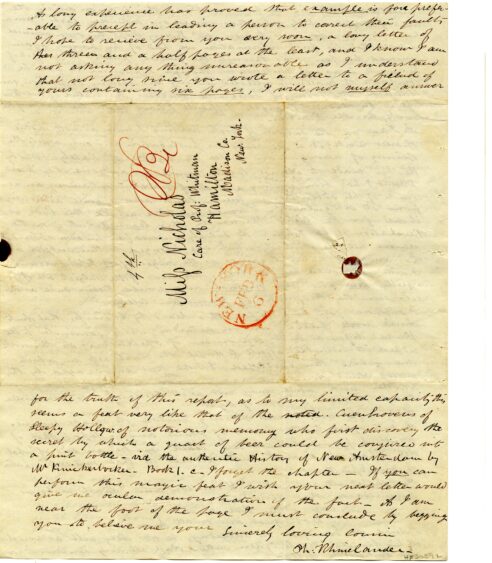 As long experience has proved that example is far prefer-
-able to precept in leading a person to correct their faults,
I hope to receive from you very soon, a long letter of
three and a half pages at the least, and I know I am
not asking any thing unreasonable as I understand
that not long since you wrote a letter to a friend of
yours containing six pages, I will not myself answer
4th
Miss Nicholas
Care of Prof: Whitman
Hamilton
Madison Co.
New York.
NEW-YORK
FEB
6
for the truth of this report, as to my limited capacity this
seems a feat very like that of the noted
Sleepy Hollow of notorious memory who first discovered the
secret by which a quart of beer could be conjured into
a pint bottle – vid the authentic History of New Amsterdam by
Mr Knickerbocker. Book 1. c – I forget the chapter – If you can
perform this magic feat I wish your next letter would
give me ocular demonstration of the fact – As I am
near the foot of the page I must conclude by begging
you to believe me your
Sincerely loving cousin
Rhinelander –